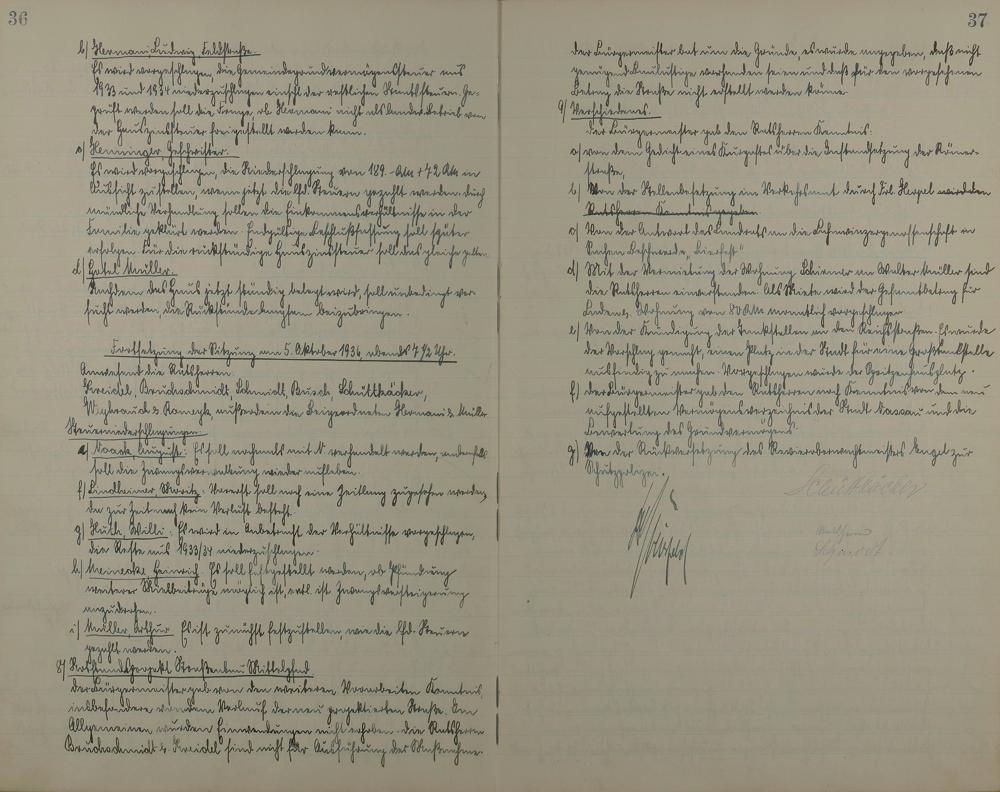 36
b) Hermani Ludwig, Feldstraße.
Es wird vorgeschlagen, die Gemeindegrundvermögenssteuer aus
1933 und 1934 niederzuschlagen einschl. der restlichen Staatssteuern. Ge-
prüft werden soll die Frage, ob Hermani nicht als Landw. Betrieb von
der Hauszinssteuer freigestellt werden kann.
c) Henninger, Geschwister.
Es wird vorgeschlagen, die Niederschlagung von 189.- RM + 72 RM in
Aussicht zu stellen, wenn jetzt die lfd. Steuern gezahlt werden. Durch
mündliche Verhandlung sollen die Einkommensverhältnisse in der
Familie geklärt werden. Endgültige Beschlußfassung soll später
erfolgen. Für die rückständige Hauszinssteuer soll das gleiche gelten.
d) Hotel Müller.
Nachdem das Haus jetzt ständig belegt wird, soll unbedingt ver-
sucht werden, die Rückstände langsam beizubringen.
Fortsetzung der Sitzung am 5. Oktober 1936, abends 7 1/2 Uhr.
Anwesend die Ratsherren:
Kreidel, Bruchschmidt, Schmidt, Busch, Schüttbäcker,
außerdem die Beigeordneten Hermani & Müller
Steuerniederschlagungen.
e) Noack, August: Es soll nochmals mit N. verhandelt werden, andernfalls
soll die Zwangsverwaltung wieder aufleben.
f) Lindheimer, Moritz: Vorerst soll noch eine Zeitlang zugesehen werden,
da zur Zeit noch kein Verlust besteht.
g) Huth, Willi: Es wird in Anbetracht der Verhältnisse vorgeschlagen,
die Reste aus 1933/34 niederzuschlagen.
h) Meinecke Heinrich. Es soll festgestellt werden, ob Pfändung
weiterer Mietbeiträge möglich ist, evtl. ist Zwangsversteigerung
anzudrohen.
i) Müller, Arthur. Es ist zunächst festzustellen, wie die lfd. Steuern
gezahlt werden.
8) Notstandsprojekt Straßenbau Mittelpfad
Der Bürgermeister gab von den weiteren Vorarbeiten Kenntnis,
insbesondere von dem Verlauf der neu projektierten Straße. Im
Allgemeinen wurden Einwendungen nicht erhoben. Die Ratsherren
Bruchschmidt & Kreidel sind nicht für Ausführung der Maßnahme.
37
Der Bürgermeister bat um die Gründe, es wurde angegeben, daß nicht
genügend Baulustige vorhanden seien und daß für den vorgesehenen
Betrag die Straße nicht erstellt werden könne.
9) Verschiedenes.
Der Bürgermeister gab den Ratsherren Kenntnis:
a) von dem Gedicht eines Kurgastes über die Instandsetzung der Römer-
straße,
b) Von der Stellenbesetzung im Verkehrsamt durch Frl. wird den
Ratsherren Kenntnis gegeben.
c) Von der Antwort des Landrats an die in
Sachen Beschwerde „Bierfest"
d) Mit der Vermietung der Wohnung Schirmer an Walter Müller sind
die Ratsherren einverstanden. Als Miete wird der Gesamtbetrag für
Laden & Wohnung von 80 RM monatlich vorgeschlagen.
e) Von der Kündigung der Tankstellen an den Reichsstraßen. Es wurde
der Vorschlag gemacht, einen Platz, in der Stadt für eine Großtankstelle
ausfindig zu machen. Vorgeschlagen wurde der
f) Der Bürgermeister gab den Ratsherren noch Kenntnis von dem neu
aufgestellten Vermögensverzeichnis der Stadt Nassau und die
Bewertung des Grundvermögens.
g) Von der Rückversetzung des Revieroberwachtmeisters Angel zur
Schutzpolizei.
Schüttbäcker
Schmidt